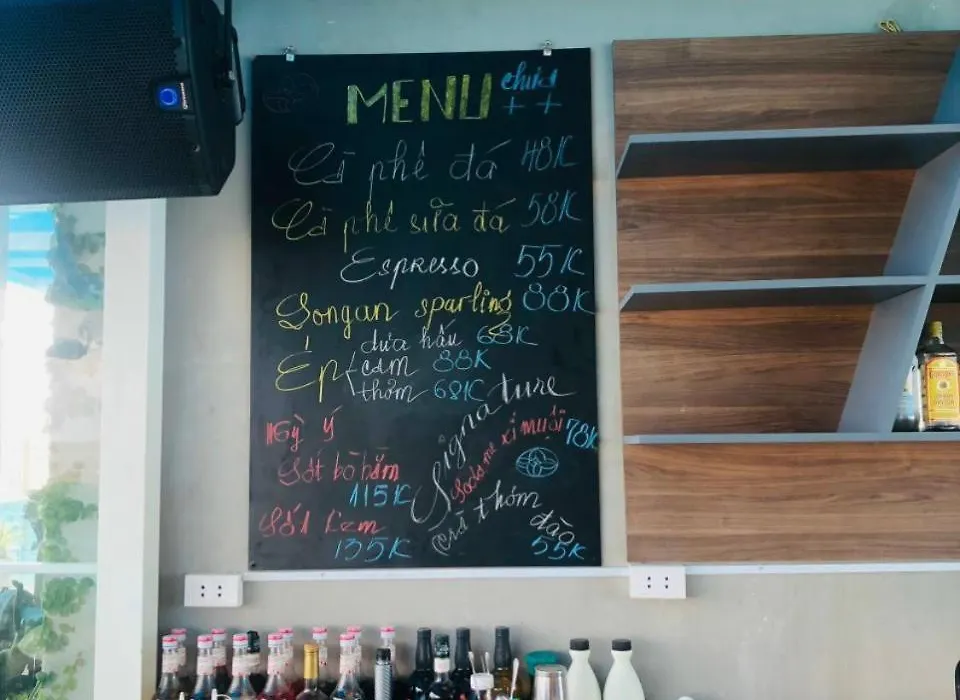 MENU
++
Cà phê đá 48K
Cà phê sữa đá 58K
Espresso 55K
Songan sparling 88K
Ép dưa hấu 68K
cam 88K
thơm 68K
Mỳ Ý
Sốt bò bằm
115K
Sốt kem
135K
Signature
Soda me xí muội 78K
Trà thơm đào
55K